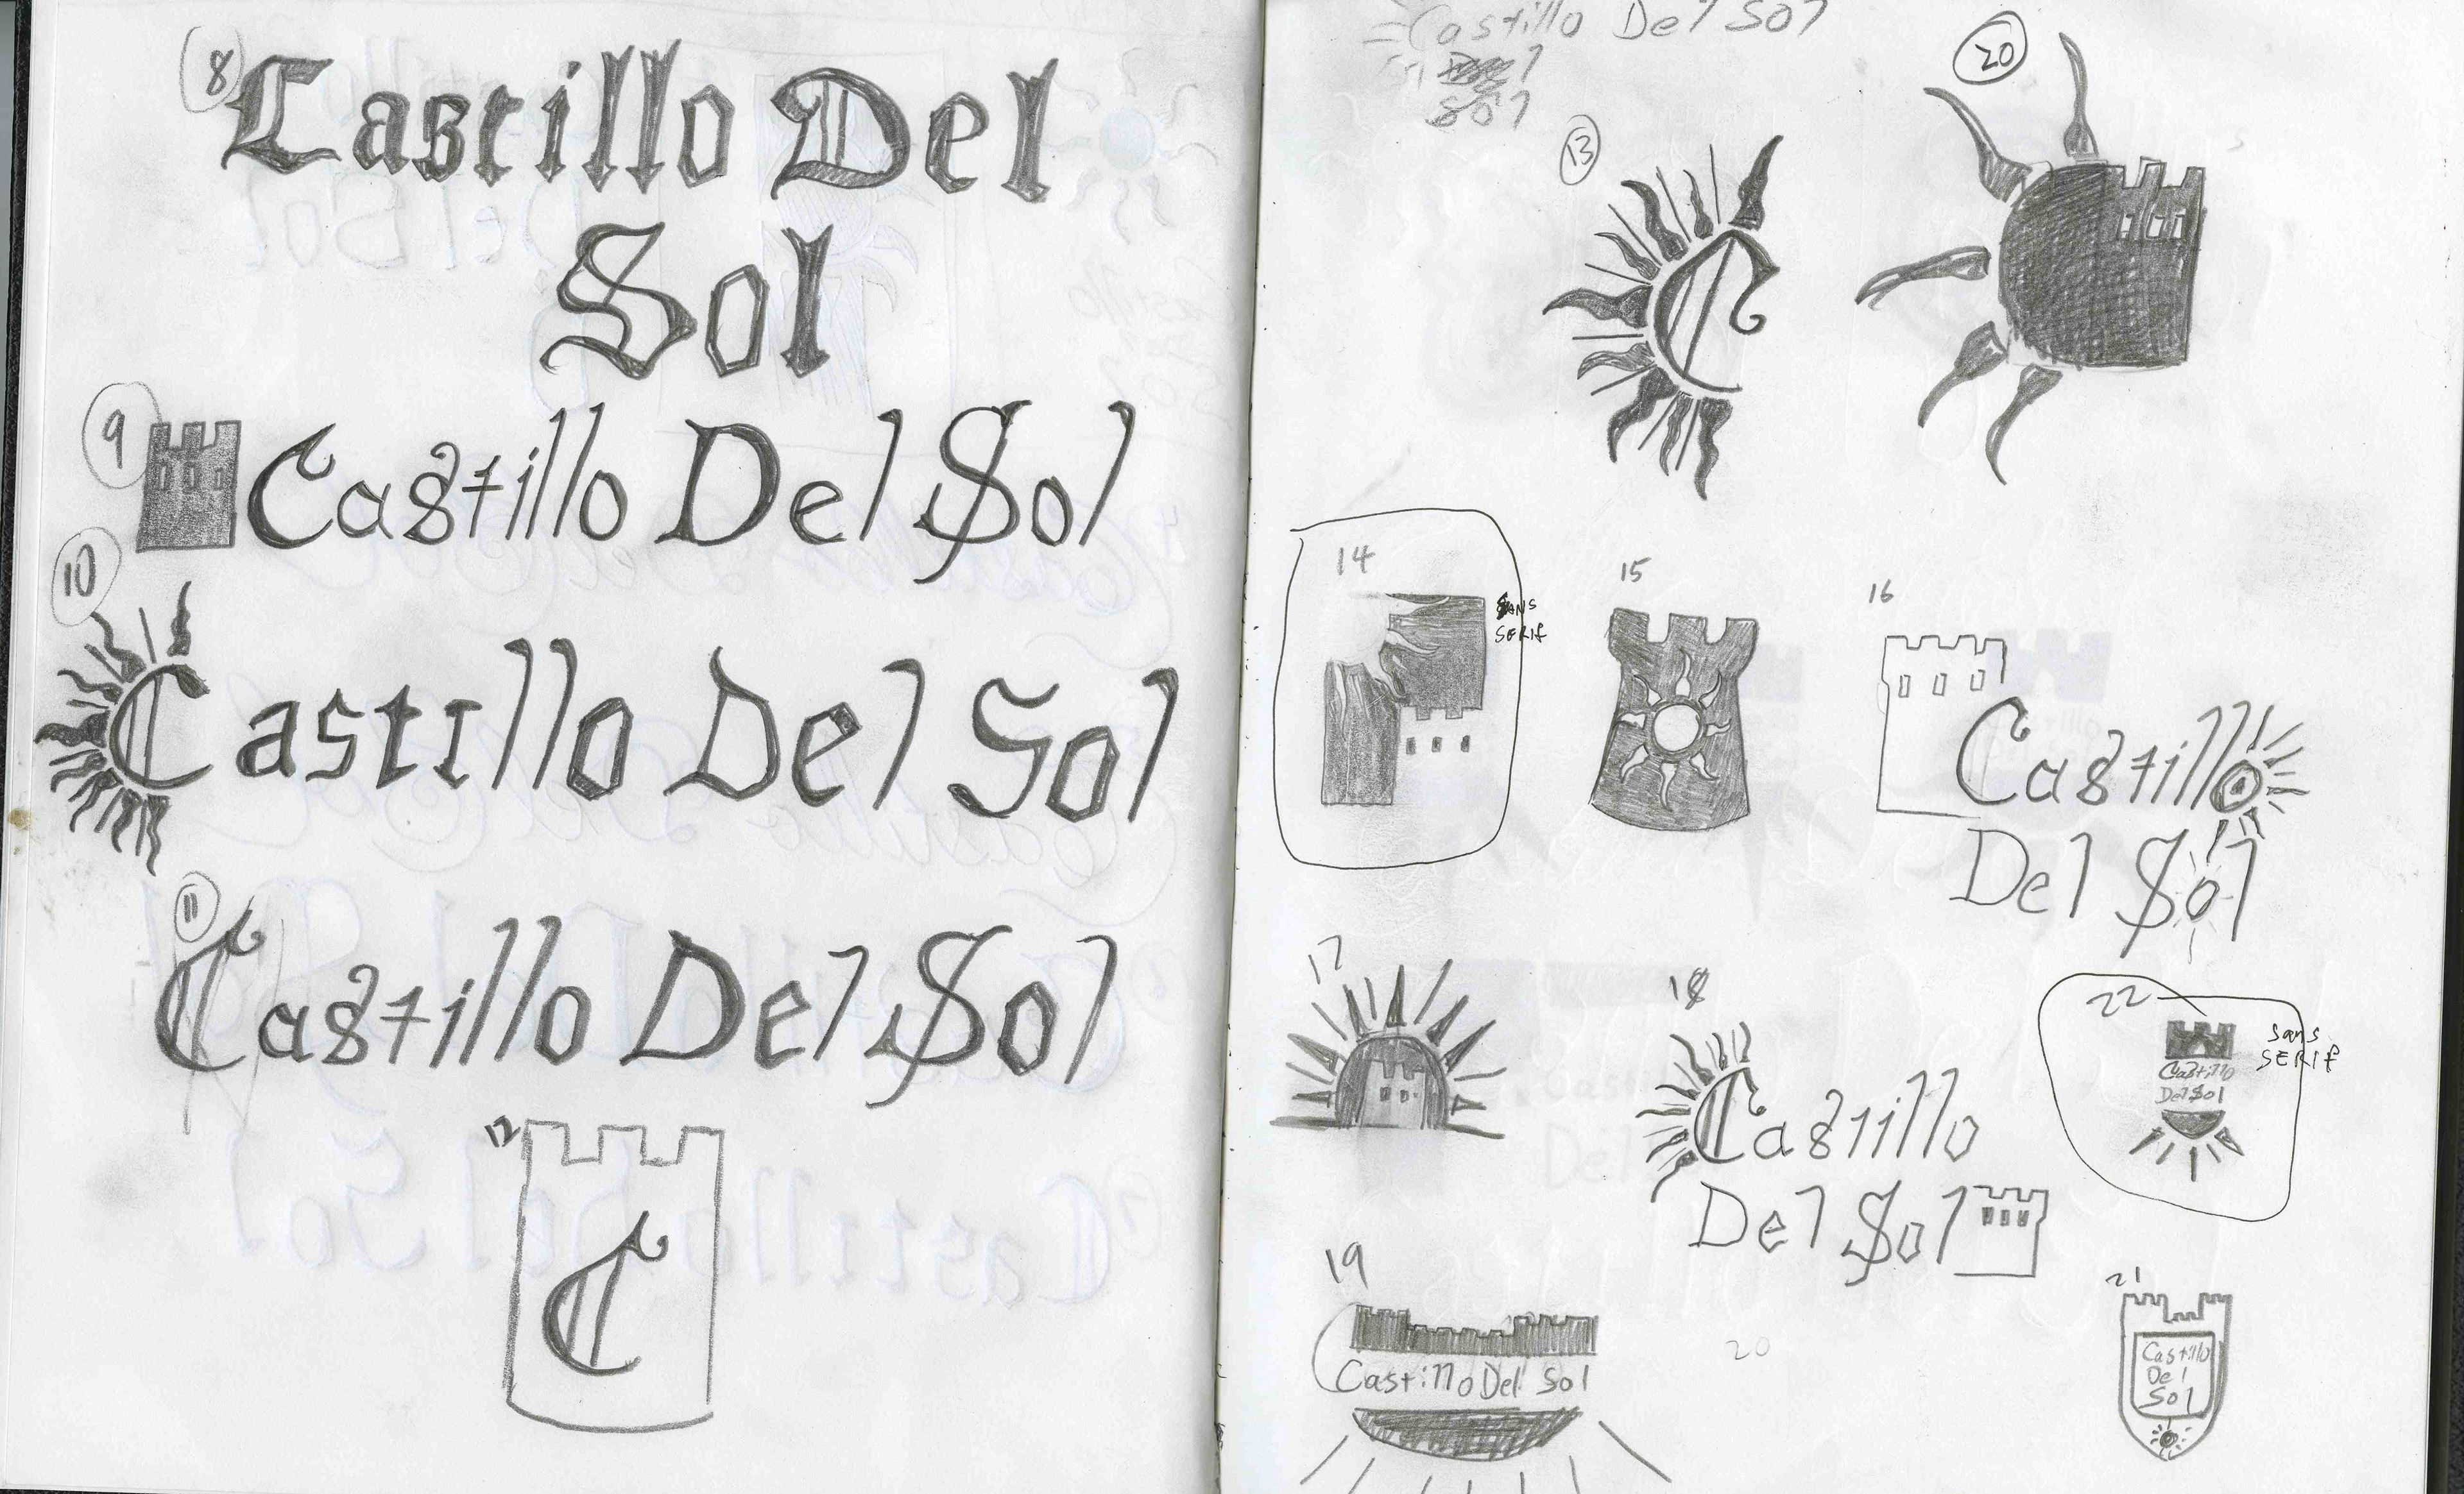 8
Castillo Del
Sol
9
Castillo Del Sol
10
Castillo Del Sol
11
Castillo Del Sol
12
C
Castillo Del Sol
Sol
20
13
C
14
SANS
SERIF
15
16
Castillo
Del Sol
17
18
Castillo
Del Sol
22
Sans
SERIF
Castillo
Del Sol
19
Castillo Del Sol
20
21
Castillo
Del
Sol